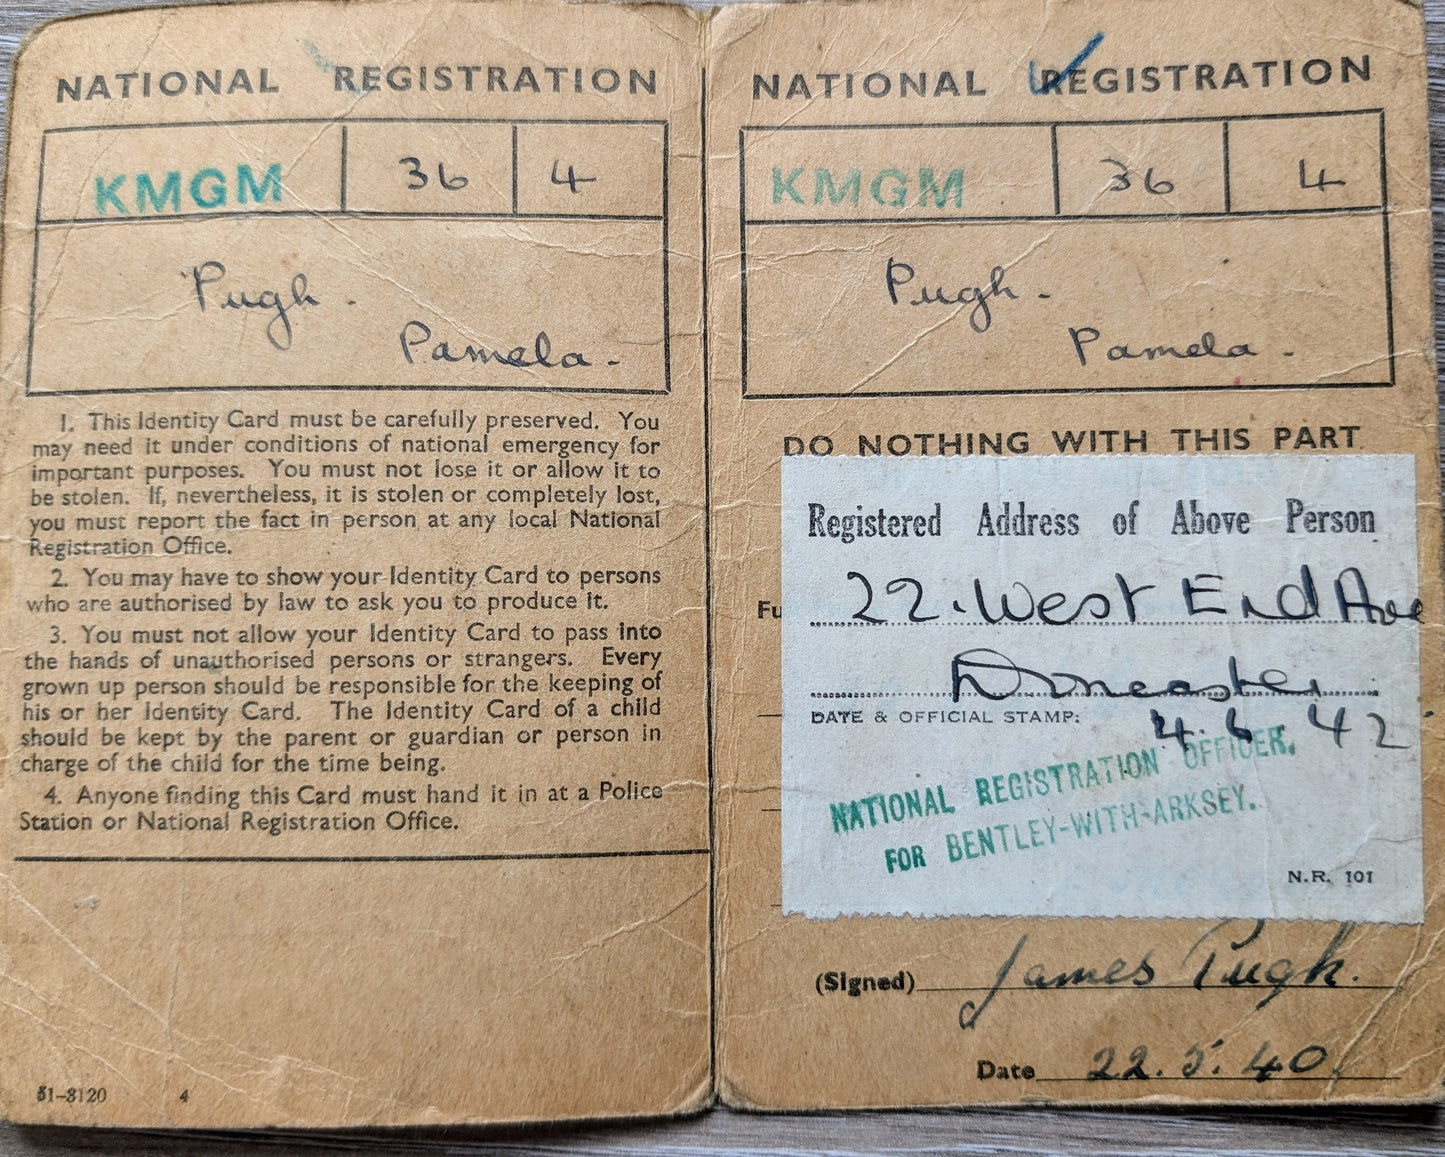 NATIONAL REGISTRATION
KMGM 36 4
Pugh.
Pamela.
1. This Identity Card must be carefully preserved. You
may need it under conditions of national emergency for
important purposes. You must not lose it or allow it to
be stolen. If, nevertheless, it is stolen or completely lost,
you must report the fact in person at any local National
Registration Office.
2. You may have to show your Identity Card to persons
who are authorised by law to ask you to produce it.
3. You must not allow your Identity Card to pass into
the hands of unauthorised persons or strangers. Every
grown up person should be responsible for the keeping of
his or her Identity Card. The Identity Card of a child
should be kept by the parent or guardian or person in
charge of the child for the time being.
4. Anyone finding this Card must hand it in at a Police
Station or National Registration Office.
51-3120 4
NATIONAL REGISTRATION
KMGM 36 4
Pugh.
Pamela.
DO NOTHING WITH THIS PART
Registered Address of Above Person
22. West End Ave
Doncaster
DATE & OFFICIAL STAMP: 4.6.42
NATIONAL REGISTRATION OFFICER.
FOR BENTLEY-WITH-ARKSEY.
N.R. 101
(Signed) James Pugh.
Date 22.5.40.